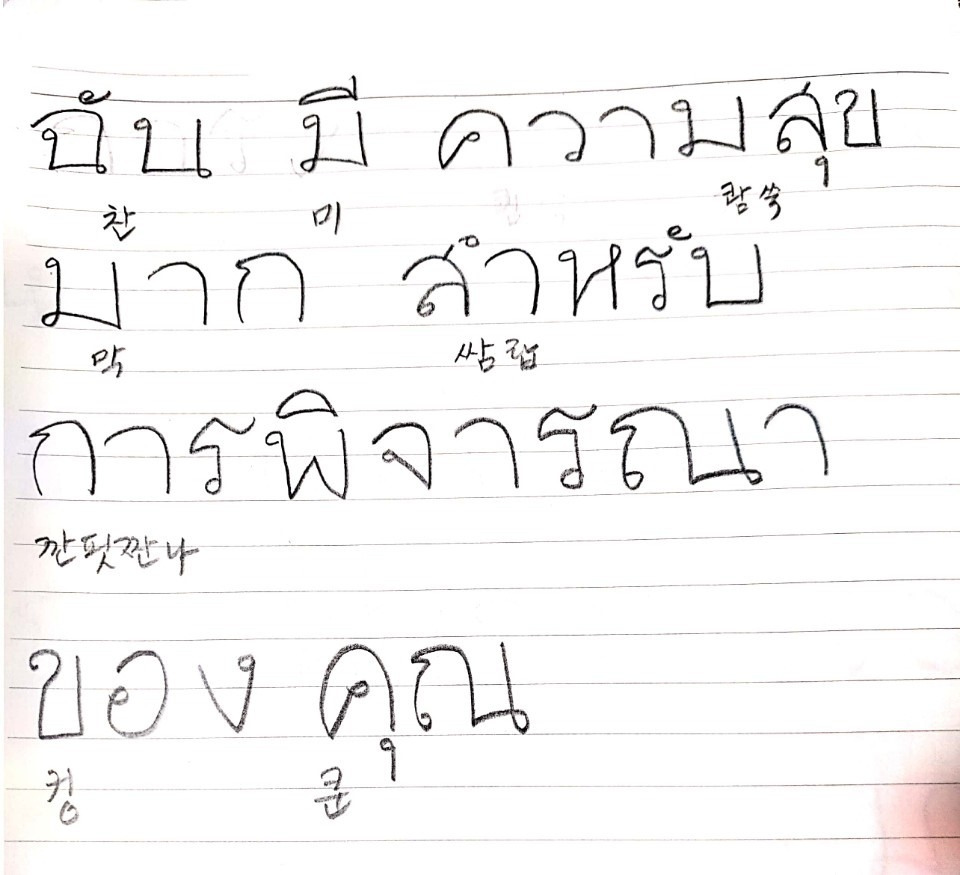 ฉัน มี ความสุข
찬 미 쾀 쑥
มาก สำหรับ
막 쌈 랍
การพิจารณา
깐핏짠나
ของ คุณ
컹 쿤